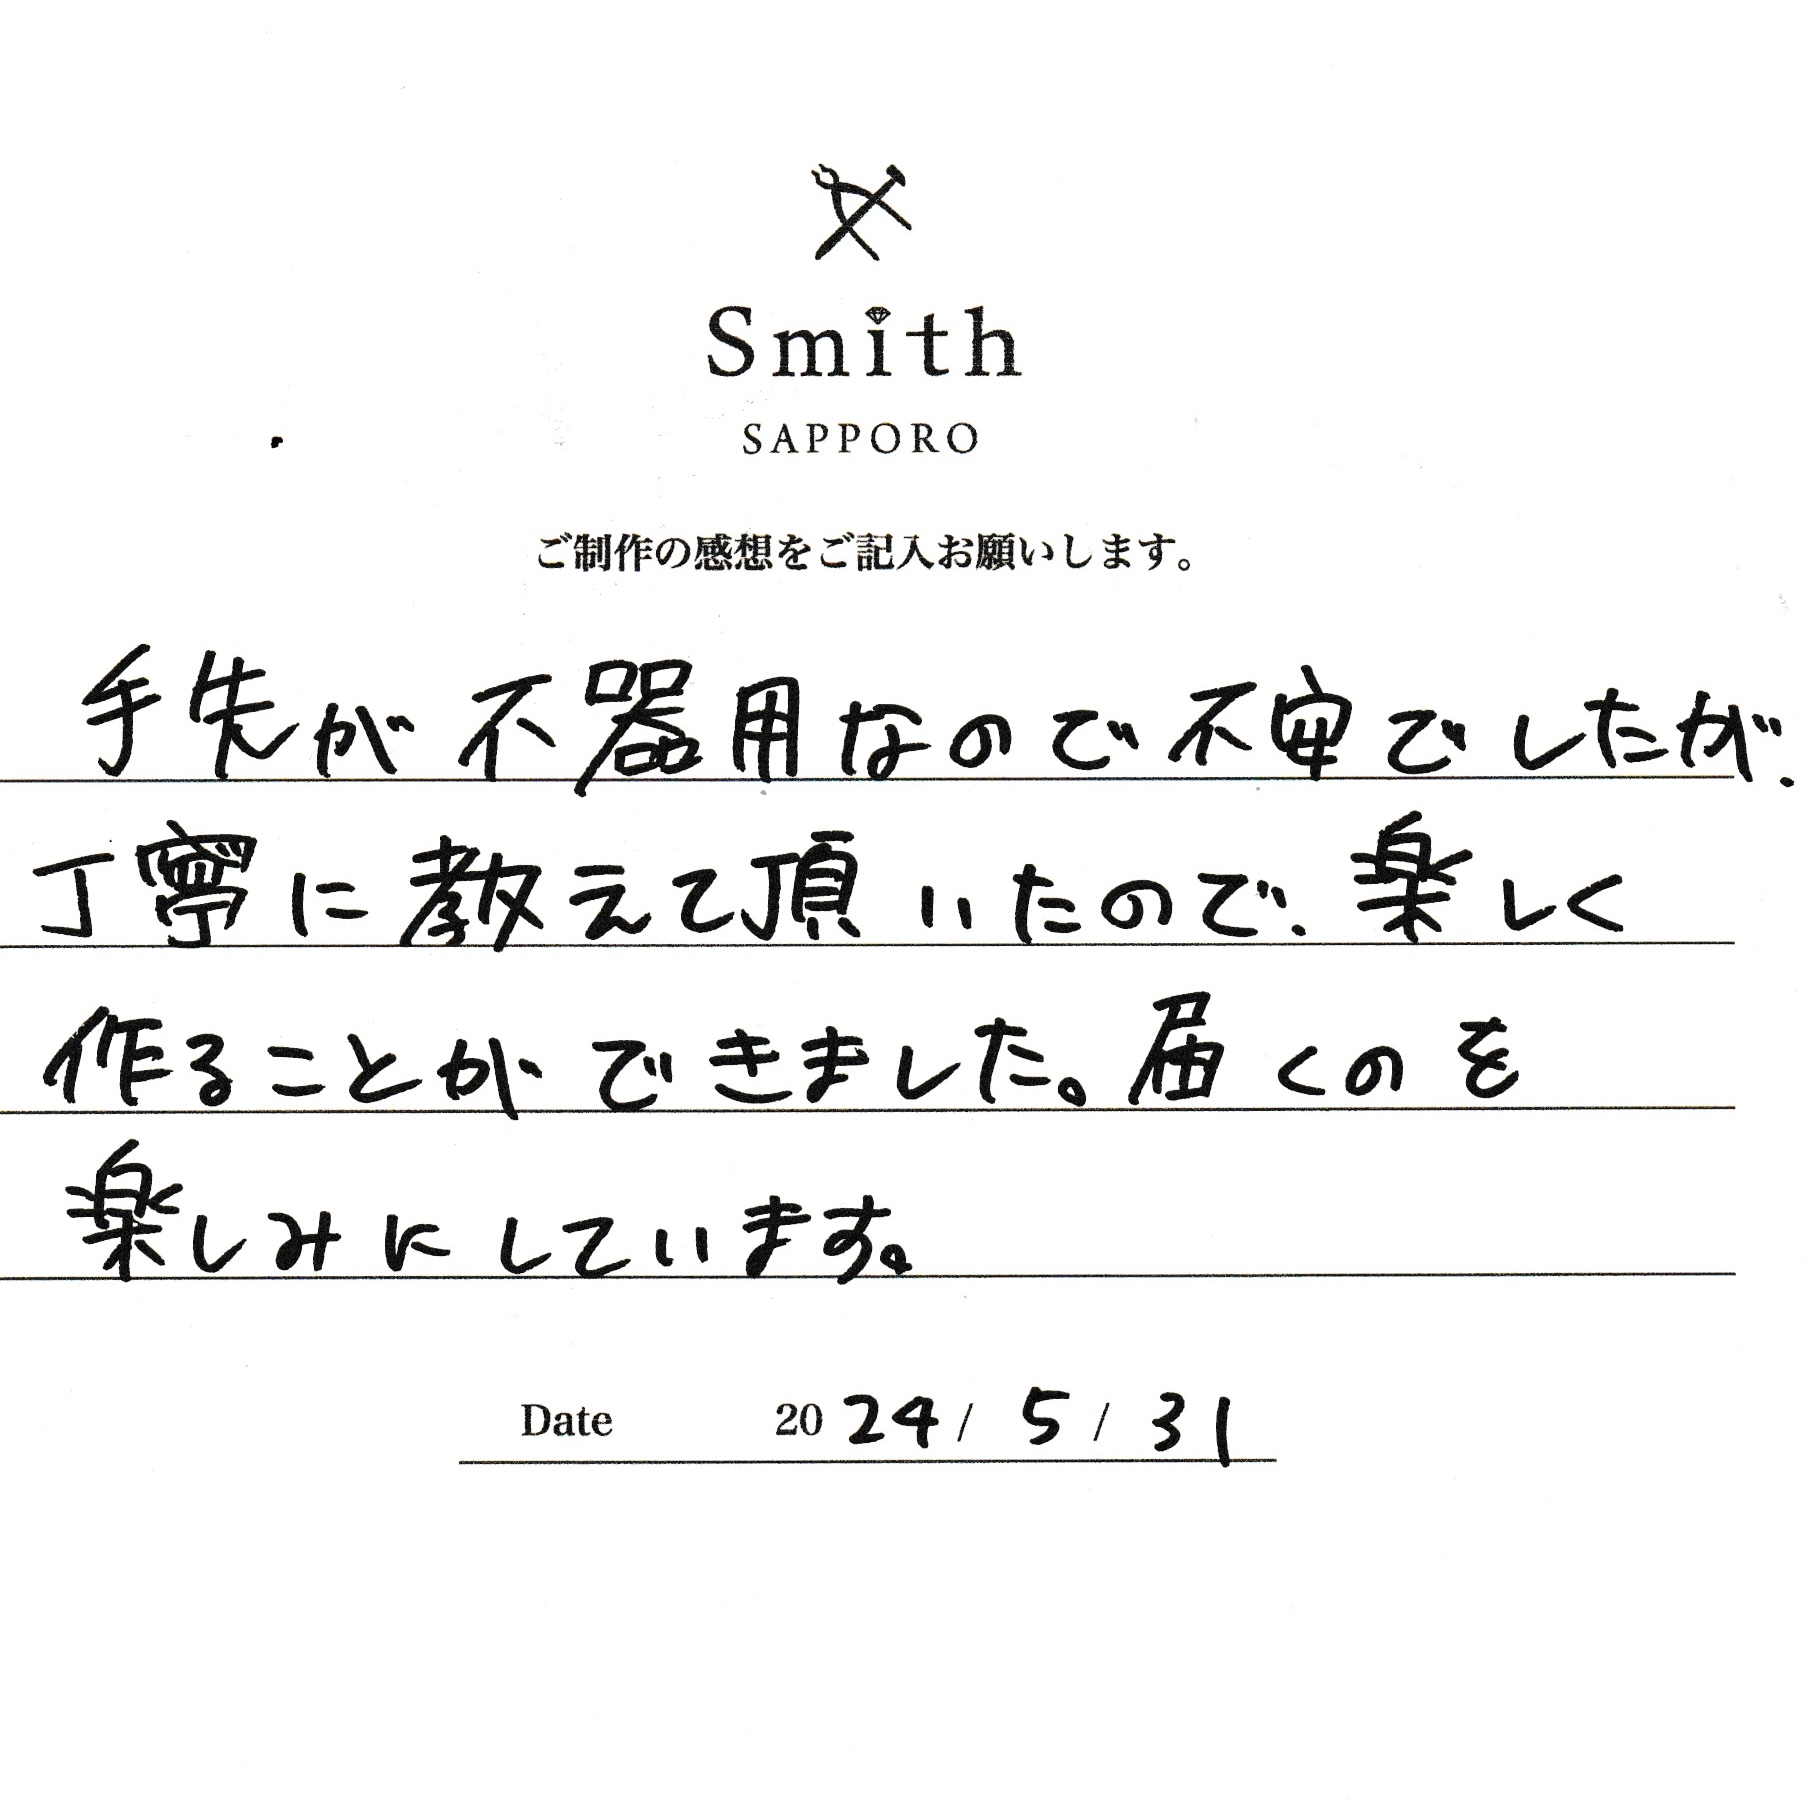 Smith
SAPPORO
ご制作の感想をご記入お願いします。
手先が不器用なので不安でしたが、
丁寧に教えて頂いたので、楽しく
作ることができました。届くのを
楽しみにしています。
Date 2024/5/31